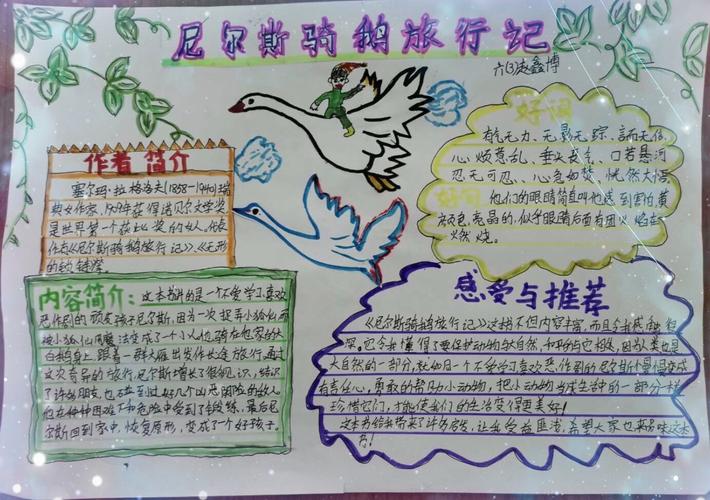 尼尔斯骑鹅旅行记
六(3)凌鑫博
作者简介
塞尔玛·拉格洛夫(1858-1940)瑞
典女作家,1909年获得诺贝尔文学奖,
是世界第一个获此奖的女人,代表
作有《尼尔斯骑鹅旅行记》、《无形
的锁链》
好词
有气无力、无影无踪、言而无信、
心烦意乱、垂头丧气、口若悬河
忍无可忍、、心急如焚、恍然大悟
好句
他们的眼睛简直叫他感到害怕,黄
颜色,亮晶的,似乎眼睛后面有团火焰在
燃烧。
内容简介:
这本书讲的是一个不爱学习、喜欢
恶作剧的顽皮孩子尼尔斯,因为一次捉弄小狐仙而
被小狐仙用魔法变成了一个小人,他骑在他家的大
白鹅身上,跟着一群大雁出发作长途旅行,通过
这次奇异的旅行,尼尔斯增长了很多见识,结识
了许多朋友,也碰到过好几个凶恶阴险的敌人
他在种种困难和危险中受到了锻炼,最后尼
尔斯回到家中,恢复原形,变成了一个好孩子。
感受与推荐
《尼尔斯骑鹅旅行记》这书不但内容丰富,而且令我感触很
深,它令我懂得了要保护动物和大自然,和平的与它相处,因为人类也是
大自然的一部分,就如同一个不爱学习喜欢恶作剧的尼尔斯,懂得变成
有责任心,勇敢的帮助小动物,把小动物当成生活中的一部分一样
珍惜它们,才能使我们的生活变得更美好!
这本书给我带来了许多启发,让我受益匪浅,希望大家也来品味这本
书!